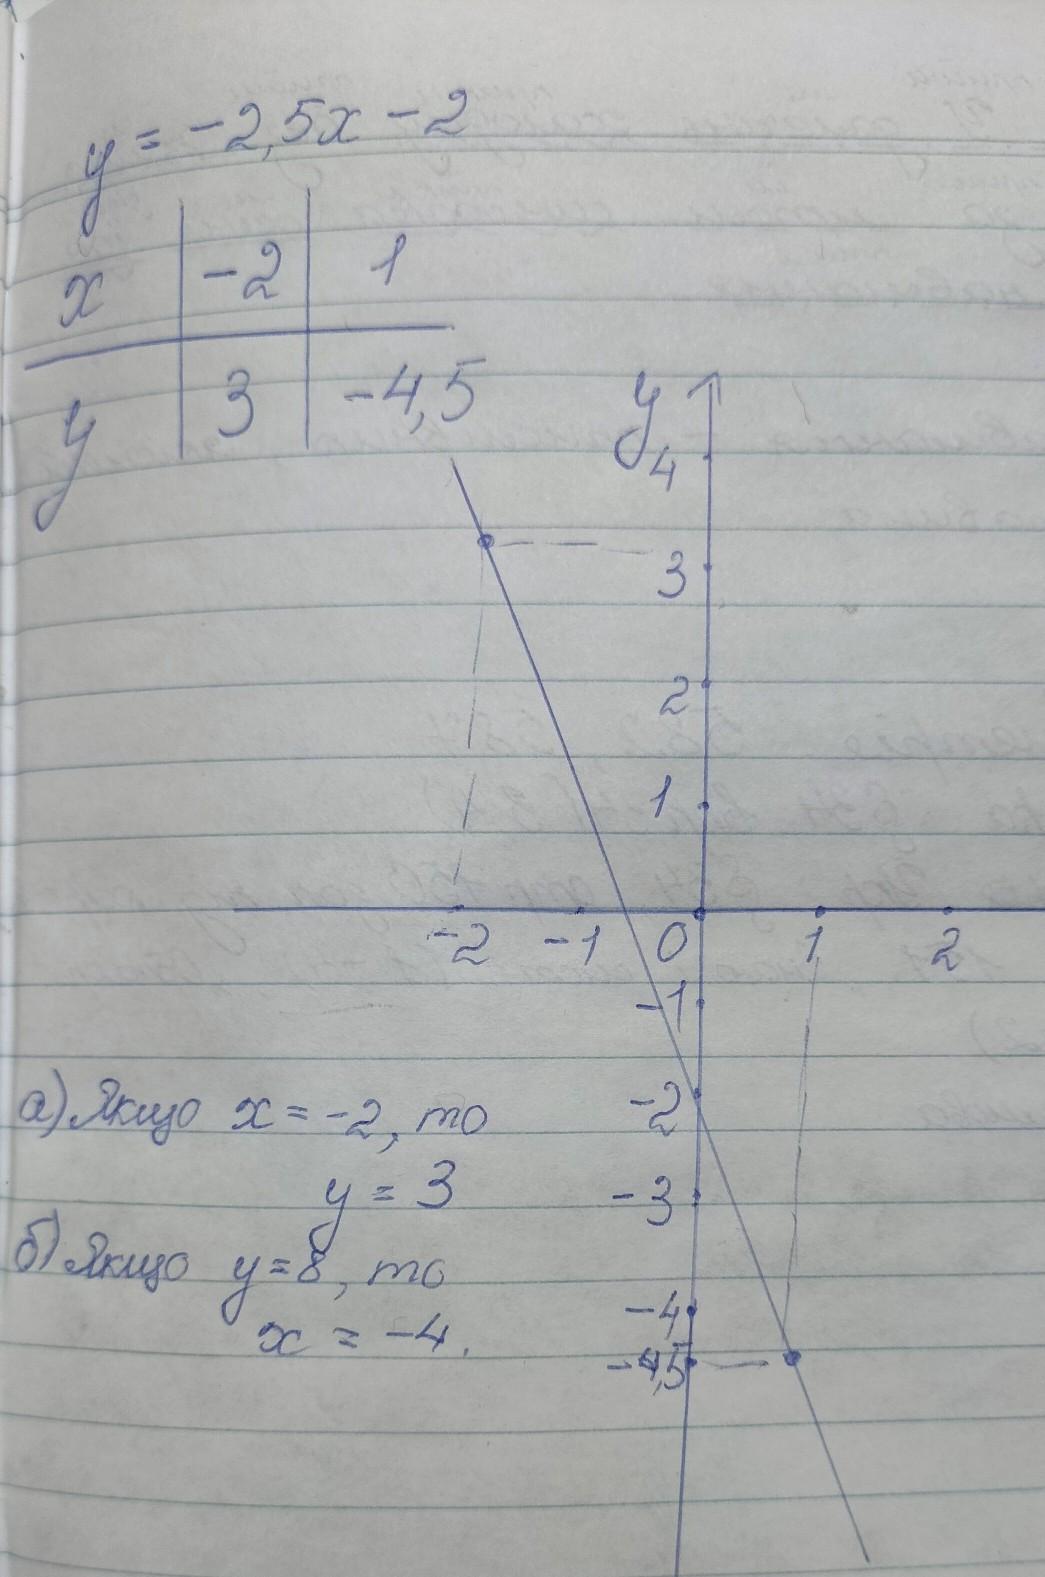 y = -2,5x - 2
x -2 1
y 3 -4,5
y
4
3
2
1
-2 -1 0 1 2
-1
-2
-3
-4
-4,5
а) Якщо x = -2, то
y = 3
б) Якщо y = 8, то
x = -4.